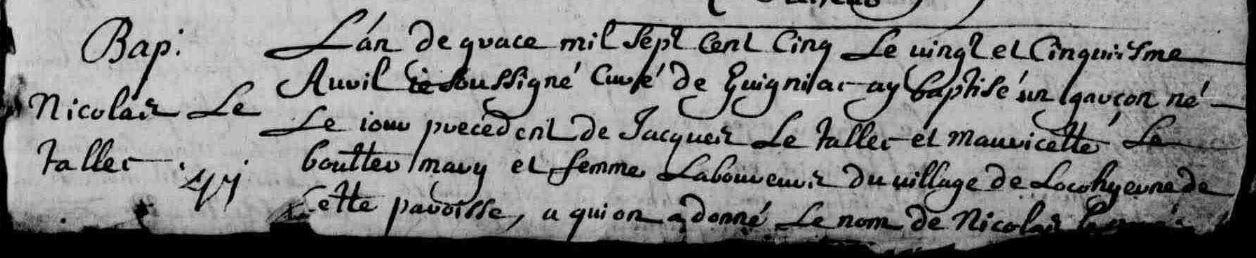 Bap.
Nicolas Le
Tallec
L'an de grace mil sept cent cinq Le vingt et cinquiesme
Avril ie soussigné curé de Guigniac ay baptisé un garçon né
Le iour precedent de Jacques Le Tallec et mauricette Le
boutter mary et femme Laboureurs du village de Locohyerne de
Cette paroisse, a qui on a donné Le nom de Nicolas